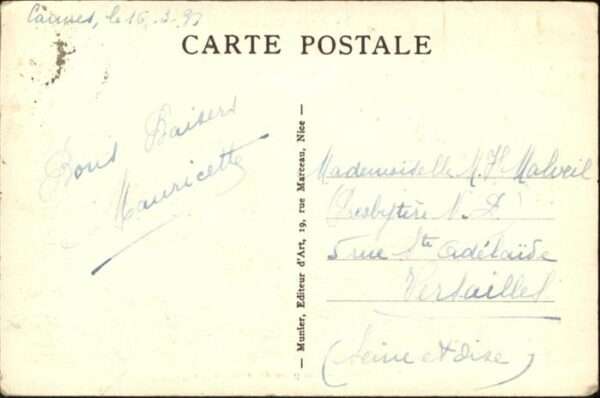 Cannes, le 16.3.37
CARTE POSTALE
Bons Baisers
Mauricette
— Munier, Editeur d'Art, 19, rue Marceau, Nice —
Mademoiselle M. Th Malveil
Presbytère N. D.
5 rue Ste Adélaïde
Versailles
(Seine et Oise)